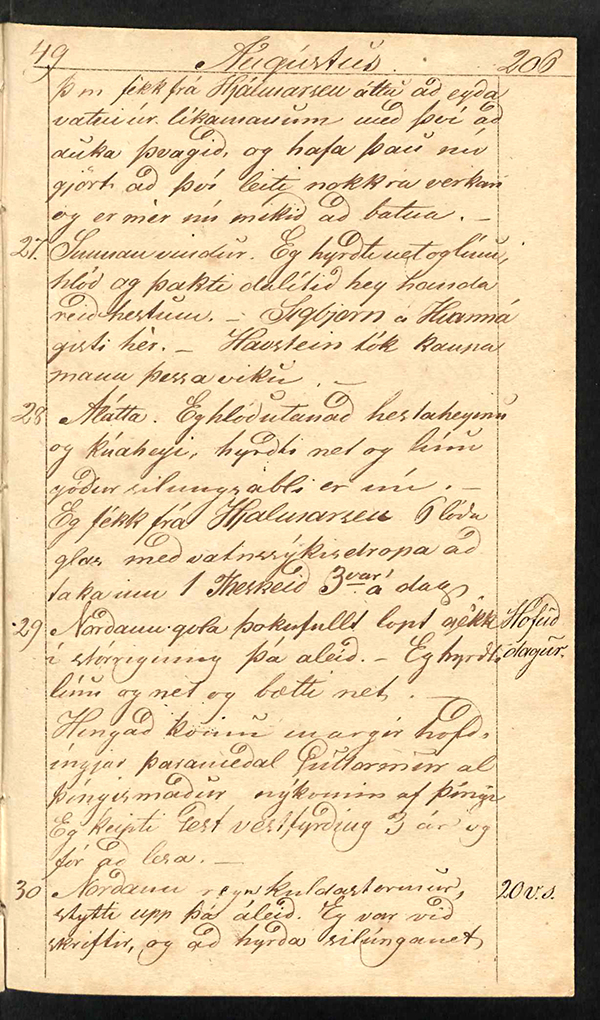 49 Augústus. 206
þm fékk frá Hjálmarsen áttu að eyða
vatni úr líkamanum með því að
auka þvagið, og hafa þau nú
gjört að því leiti nokkra verkan
og er mér nú mikið að batna. –
27 Sunnan vindur. Eg hyrdti net og línu,
hlóð og þakti dálítið hey handa
reidhestum. – Sigbjorn á
gisti hér. – Havstein tók kaupa
mann þessa viku. –
28 Álátta. Eg hlóð utanað hestaheyinu
og kúaheyi, hyrdti net og línu
góður silungsabli er nú. –
Eg fékk frá Hjalmarsen 6 lóda
glas med vatnssýkisdropa að
taka inn 1 Theskeið 3var á dag,
29 Nordann gola þokufullt lopt gékk Höfud
í stórrigning þá aleid. – Eg hyrdti dagur.
línu og net og bætti net. –
Hingað komu margir höfd,
ingjar þaramedal Guttormur al
þingismadur nýkomin af þingi
Eg keipti Test vestfyrding 3 ár og
fór að lesa. –
30 Nordann regn kuldastormur, 20 v.s.
stytti upp þá áleid. Eg var við
skriftir, og að hyrda silúnganet